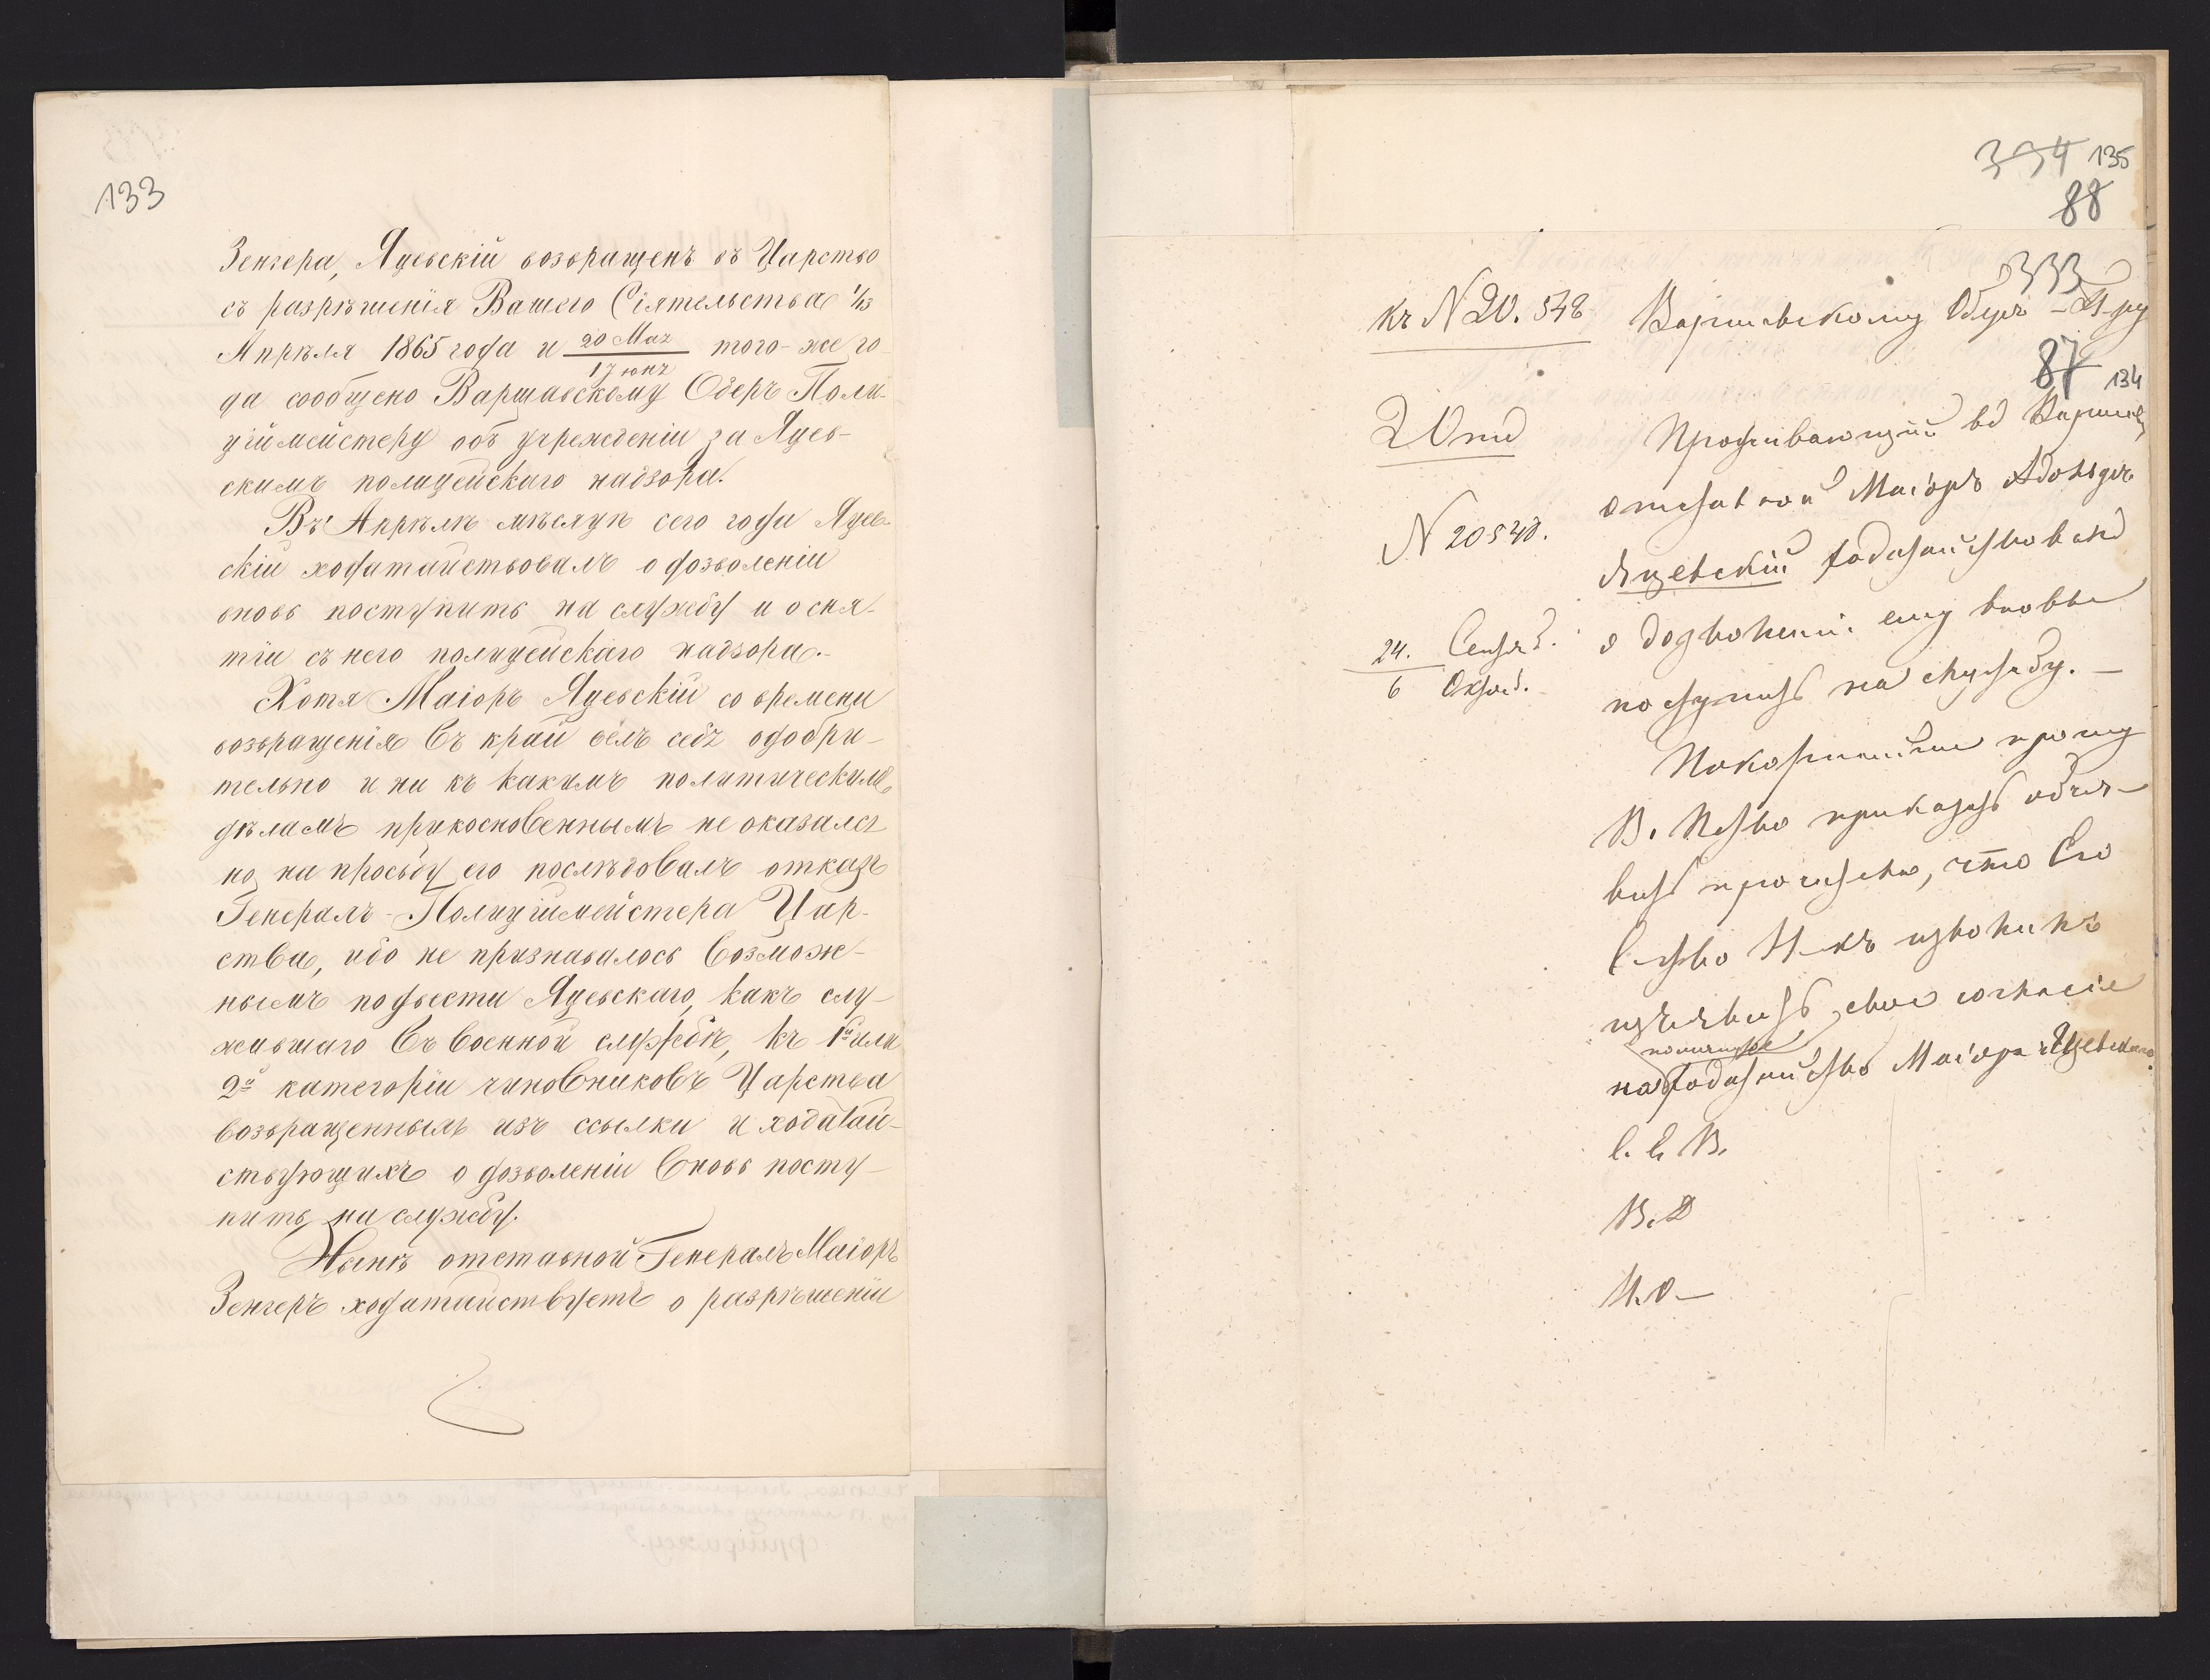 133
Зенгера, Яцевскій возвращенъ въ Царство
съ разрѣшенія Вашего Сіятельства 1/13
Апрѣля 1865 года и 20 Мая/17 юня того-же го-
да сообщено Варшавскому Оберъ Поли-
ціймейстеру объ учрежденіи за Яцев-
скимъ полицейскаго надзора.
Въ Апрѣлѣ мѣсяцѣ сего года Яцев-
скій ходатайствовалъ о дозволеніи
вновь поступить на службу и о сня-
тіи съ него полицейскаго надзора.-
Хотя Маіоръ Яцевскій со времени
возвращенія въ край велъ себя одобри-
тельно и ни къ какимъ политическимъ
дѣламъ прикосновеннымъ не оказался
но, на просьбу его послѣдовалъ отказъ
Генералъ-Полиціймейстера Цар-
ства, ибо не признавалось возмож-
нымъ подвести Яцевскаго, какъ слу-
жившаго въ военной службѣ, къ 1й или
2й категоріи чиновниковъ Царства
возвращеннымъ изъ ссылки и ходатай-
ствующихъ о дозволеніи вновь посту-
пить на службу.
Нынѣ отставной Генералъ Маіоръ
Зенгеръ ходатайствуетъ о разрѣшеніи
394 135
88
333
къ N 20.548 Варшавскому Оберъ-П-ру
87 134
2 Отд
N 20548.
24. Сентяб.
6 Октяб.
Проживающій въ Варшавѣ
отставной Маіоръ Адольфъ
Яцевскій ходатайствовалъ
о дозволеніи ему вновь
поступить на службу.-
Покорнѣйше прошу
В. П-ство приказать объя-
вить просителю, что Его
С-ство Н-къ изволилъ
изъявить свое согласіе
на ходатайство Маіора Яцевскаго.
С. Е. В.
В. Д
Н. О-